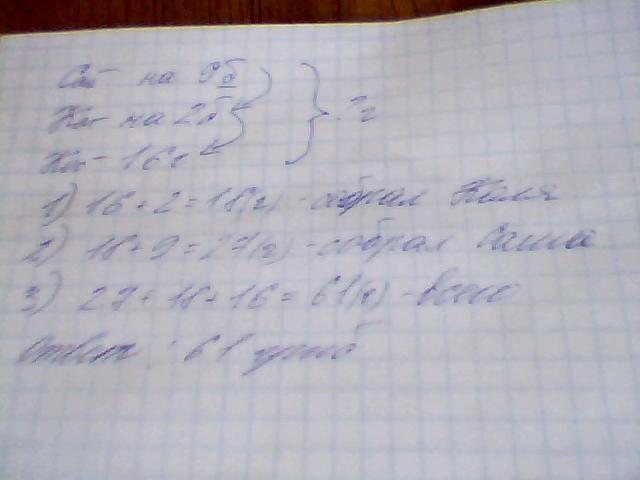 на 9б
на 2б ? г
16г
1) 16 + 2 = 18(г) - собрал Коля
2) 18 + 9 = 27(г) - собрал Саша
3) 27 + 18 + 16 = 61(г) - всего
Ответ : 61 гриб